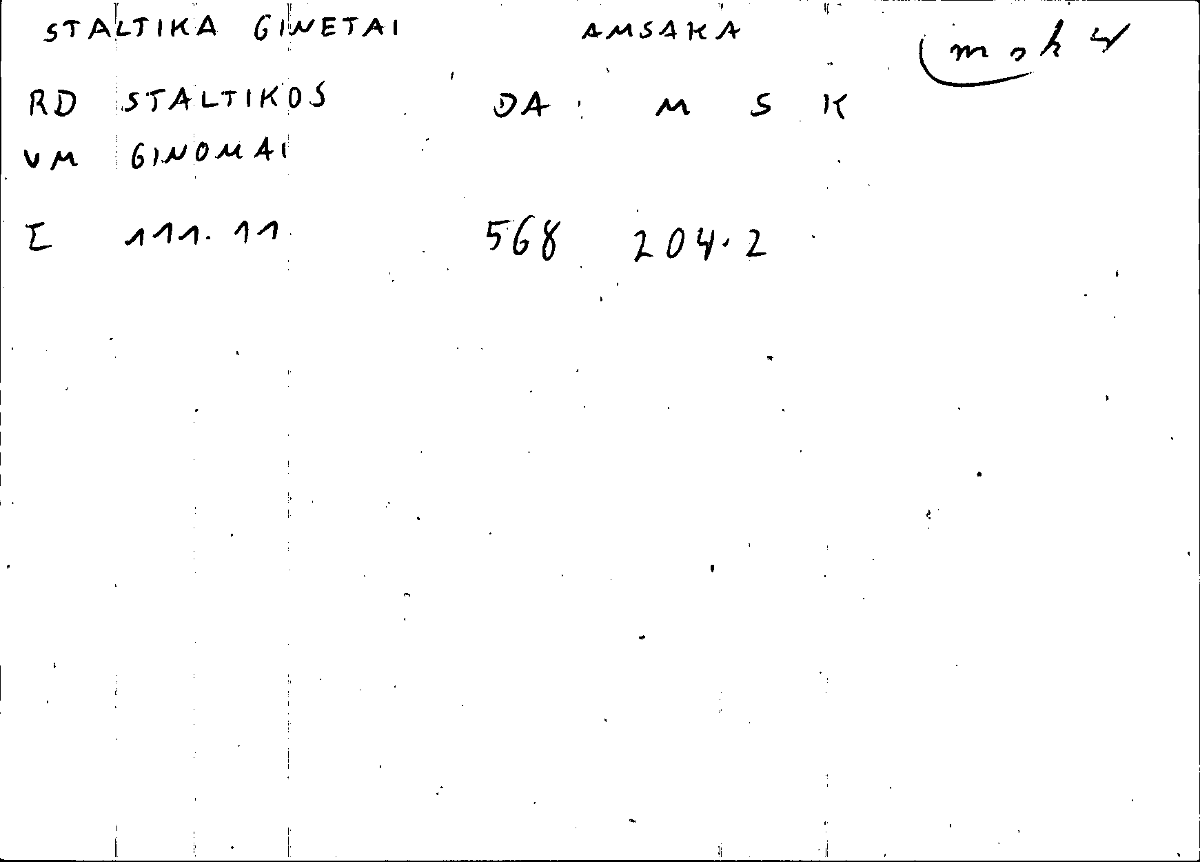 STALTIKA GINETAI AMSAKA
RD STALTIKOS DA : M S K
VM GINOMAI
E 111.11 568 204.2